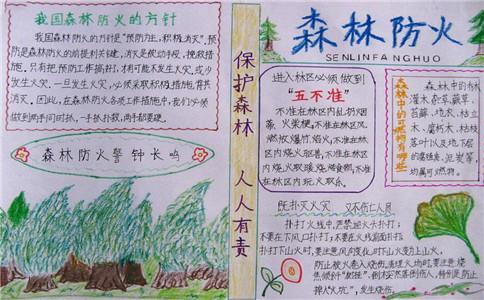 我国森林防火的方针
我国森林防火的方针是"预防为主,积极消灭".预
防是森林防火的前提和关键,消灭是被动手段、挽救措
施.只有把预防工作搞好,才有可能不发生火灾或少
发生火灾.一旦发生火灾,必须采取积极措施,
消灭.因此,在森林防火各项工作措施中,我们必须
做到两手同时抓,
森林防火警钟长鸣
保护森林 人人有责
森林防火
SENLINFANGHUO
进入林区必须做到
"五不准"
不准在林区内乱扔烟
蒂、火柴梗,不准在林区风
燃放爆竹、焰火,不准在林
区内烧火驱兽,不准在林区
内烧火取暖、烧烤食物,不准
在林区内玩火取乐.
森林中的可燃物有哪些
森林中的乔木
灌木、杂草、蕨草、
苔藓、地衣、枯立
木、腐朽木、枯枝
落叶以及地下层
的腐殖质、泥炭等,
均属可燃物.
既扑灭火灾 又不伤亡人员
扑打火线中,严禁迎火头扑打;
不要在下风口扑打;不要在火线前面扑打;
扑打下山火时,要注意风向变化,时下山火变为上山火,
防止被火卷入烧伤.清理火场时,要注意烧
焦倾斜"挂耳"、倒木突然落倒伤人,特别是防止
掉入"火坑",发生烧伤.